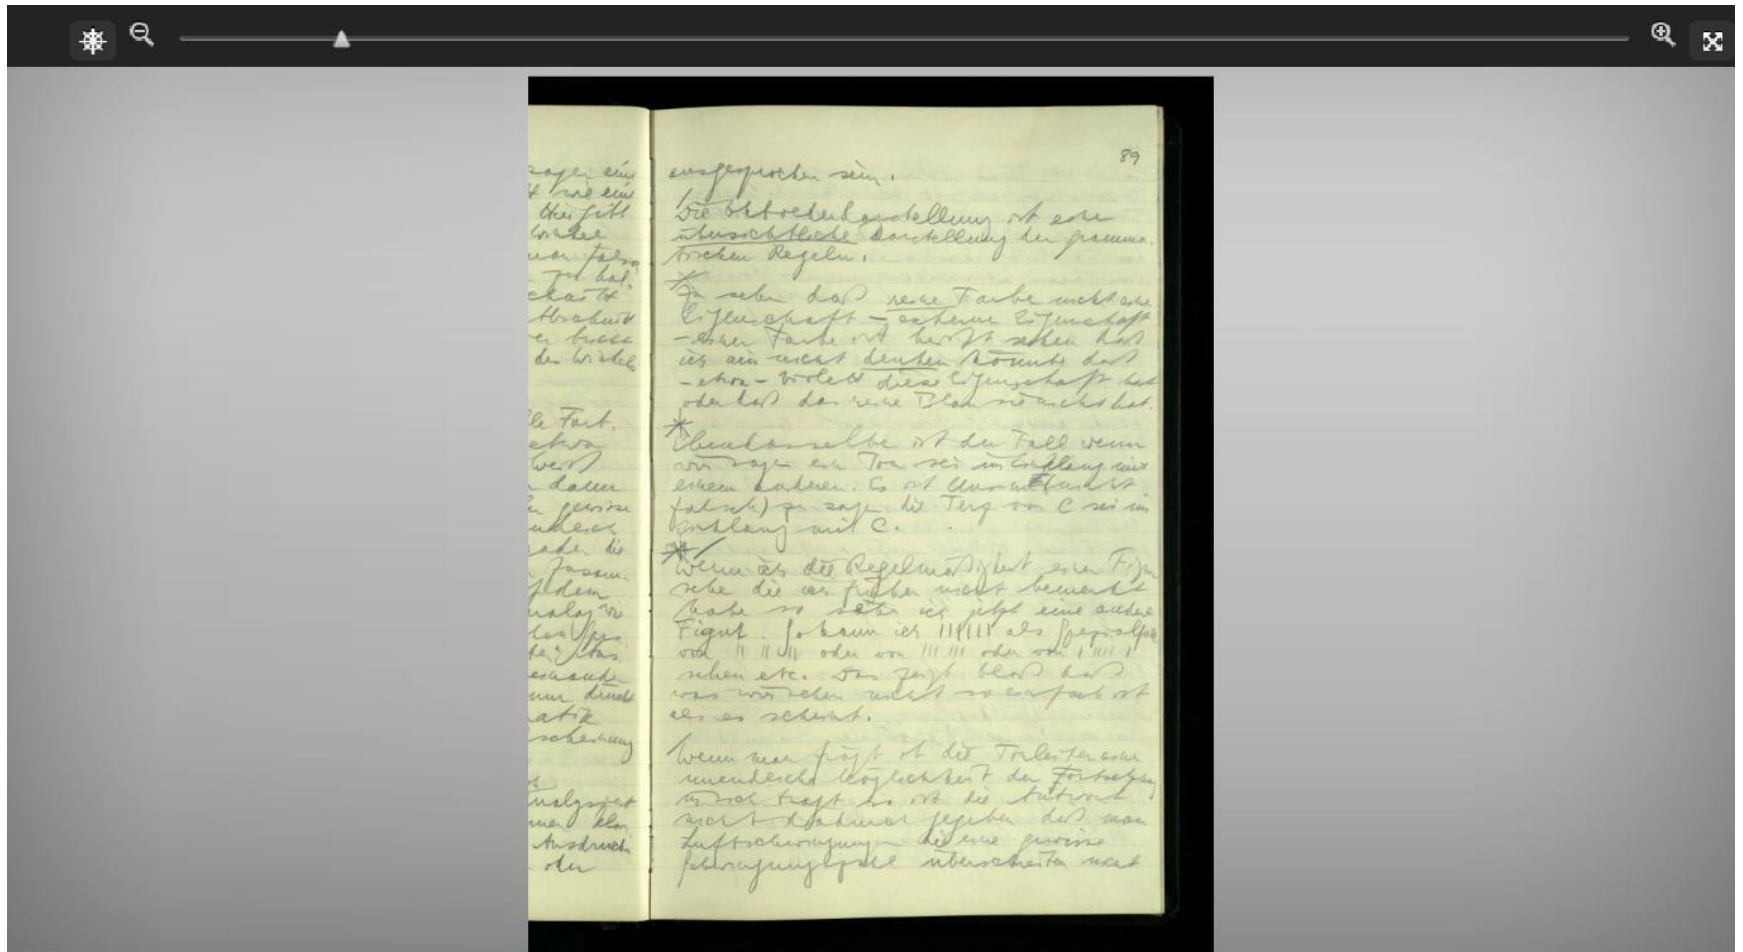 sagen eine
wie eine
Hier gibt
Winkel
der Winkel
etwa
dann
gewisse
oder die
dem
Ausdruck
oder
89
ausgesprochen sein.
Die Oktaederdarstellung ist eine
übersichtliche Darstellung der gramma-
tischen Regeln.
Zu sehen daß reine Farbe nicht eine
Eigenschaft – externe Eigenschaft
– einer Farbe ist heißt sehen daß
ich mir nicht denken könnte daß
– etwa – Violett diese Eigenschaft hat
oder daß das reine Blau sie nicht hat.
Ebendasselbe ist der Fall wenn
wir sagen ein Ton sei im Einklang mit
einem anderen. Es ist Unsinn (nicht
falsch) zu sagen die Terz von C sei im
Einklang mit C.
Wenn ich die Regelmäßigkeit einer Figur
sehe die ich früher nicht bemerkt
habe so sehe ich jetzt eine andere
Figur. So kann ich |||||| als Spezialfall
von || || || oder von ||| ||| oder von | |||| |
sehen etc. Das zeigt bloß daß
was wir sehen nicht so einfach ist
als es scheint.
Wenn man frägt ob die Tonleiter eine
unendliche Möglichkeit der Fortsetzung
in sich trägt so ist die Antwort
nicht dadurch gegeben daß man
Luftschwingungen die eine gewisse
Schwingungszahl überschreiten nicht